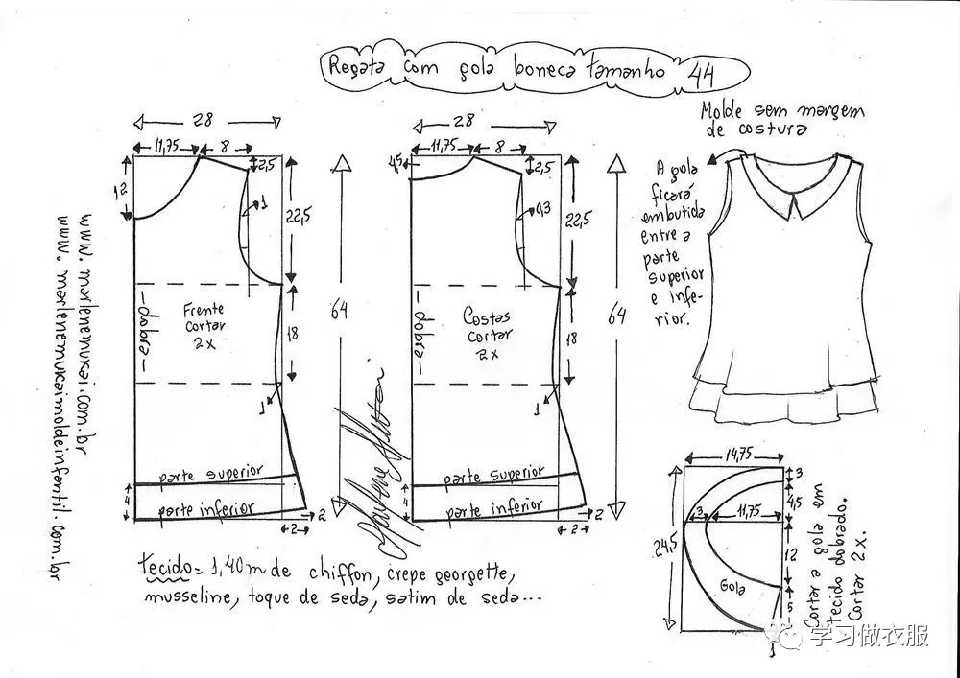 Regata com gola boneca tamanho 44
Molde sem margem
de costura
A gola
ficará
embutida
entre a
parte
superior
e infe-
rior.
www.marlenemukai.com.br
www.marlenemukaimoldeinfantil.com.br
28
11,75
8
2,5
12
1
22,5
Frente
cortar
2x
-dobra-
18
64
1
parte superior
parte inferior
4
2
2
28
11,75
8
4,5
2,5
0,3
22,5
Costas
cortar
2x
-dobra-
18
64
1
parte superior
parte inferior
4
2
2
tecido= 1,40m de chiffon, crepe georgette,
musseline, toque de seda, satim de seda...
14,75
3
4,5
3
11,75
24,5
12
Gola
5
1
Cortar a gola em
tecido dobrado.
Cortar 2x.
学习做衣服